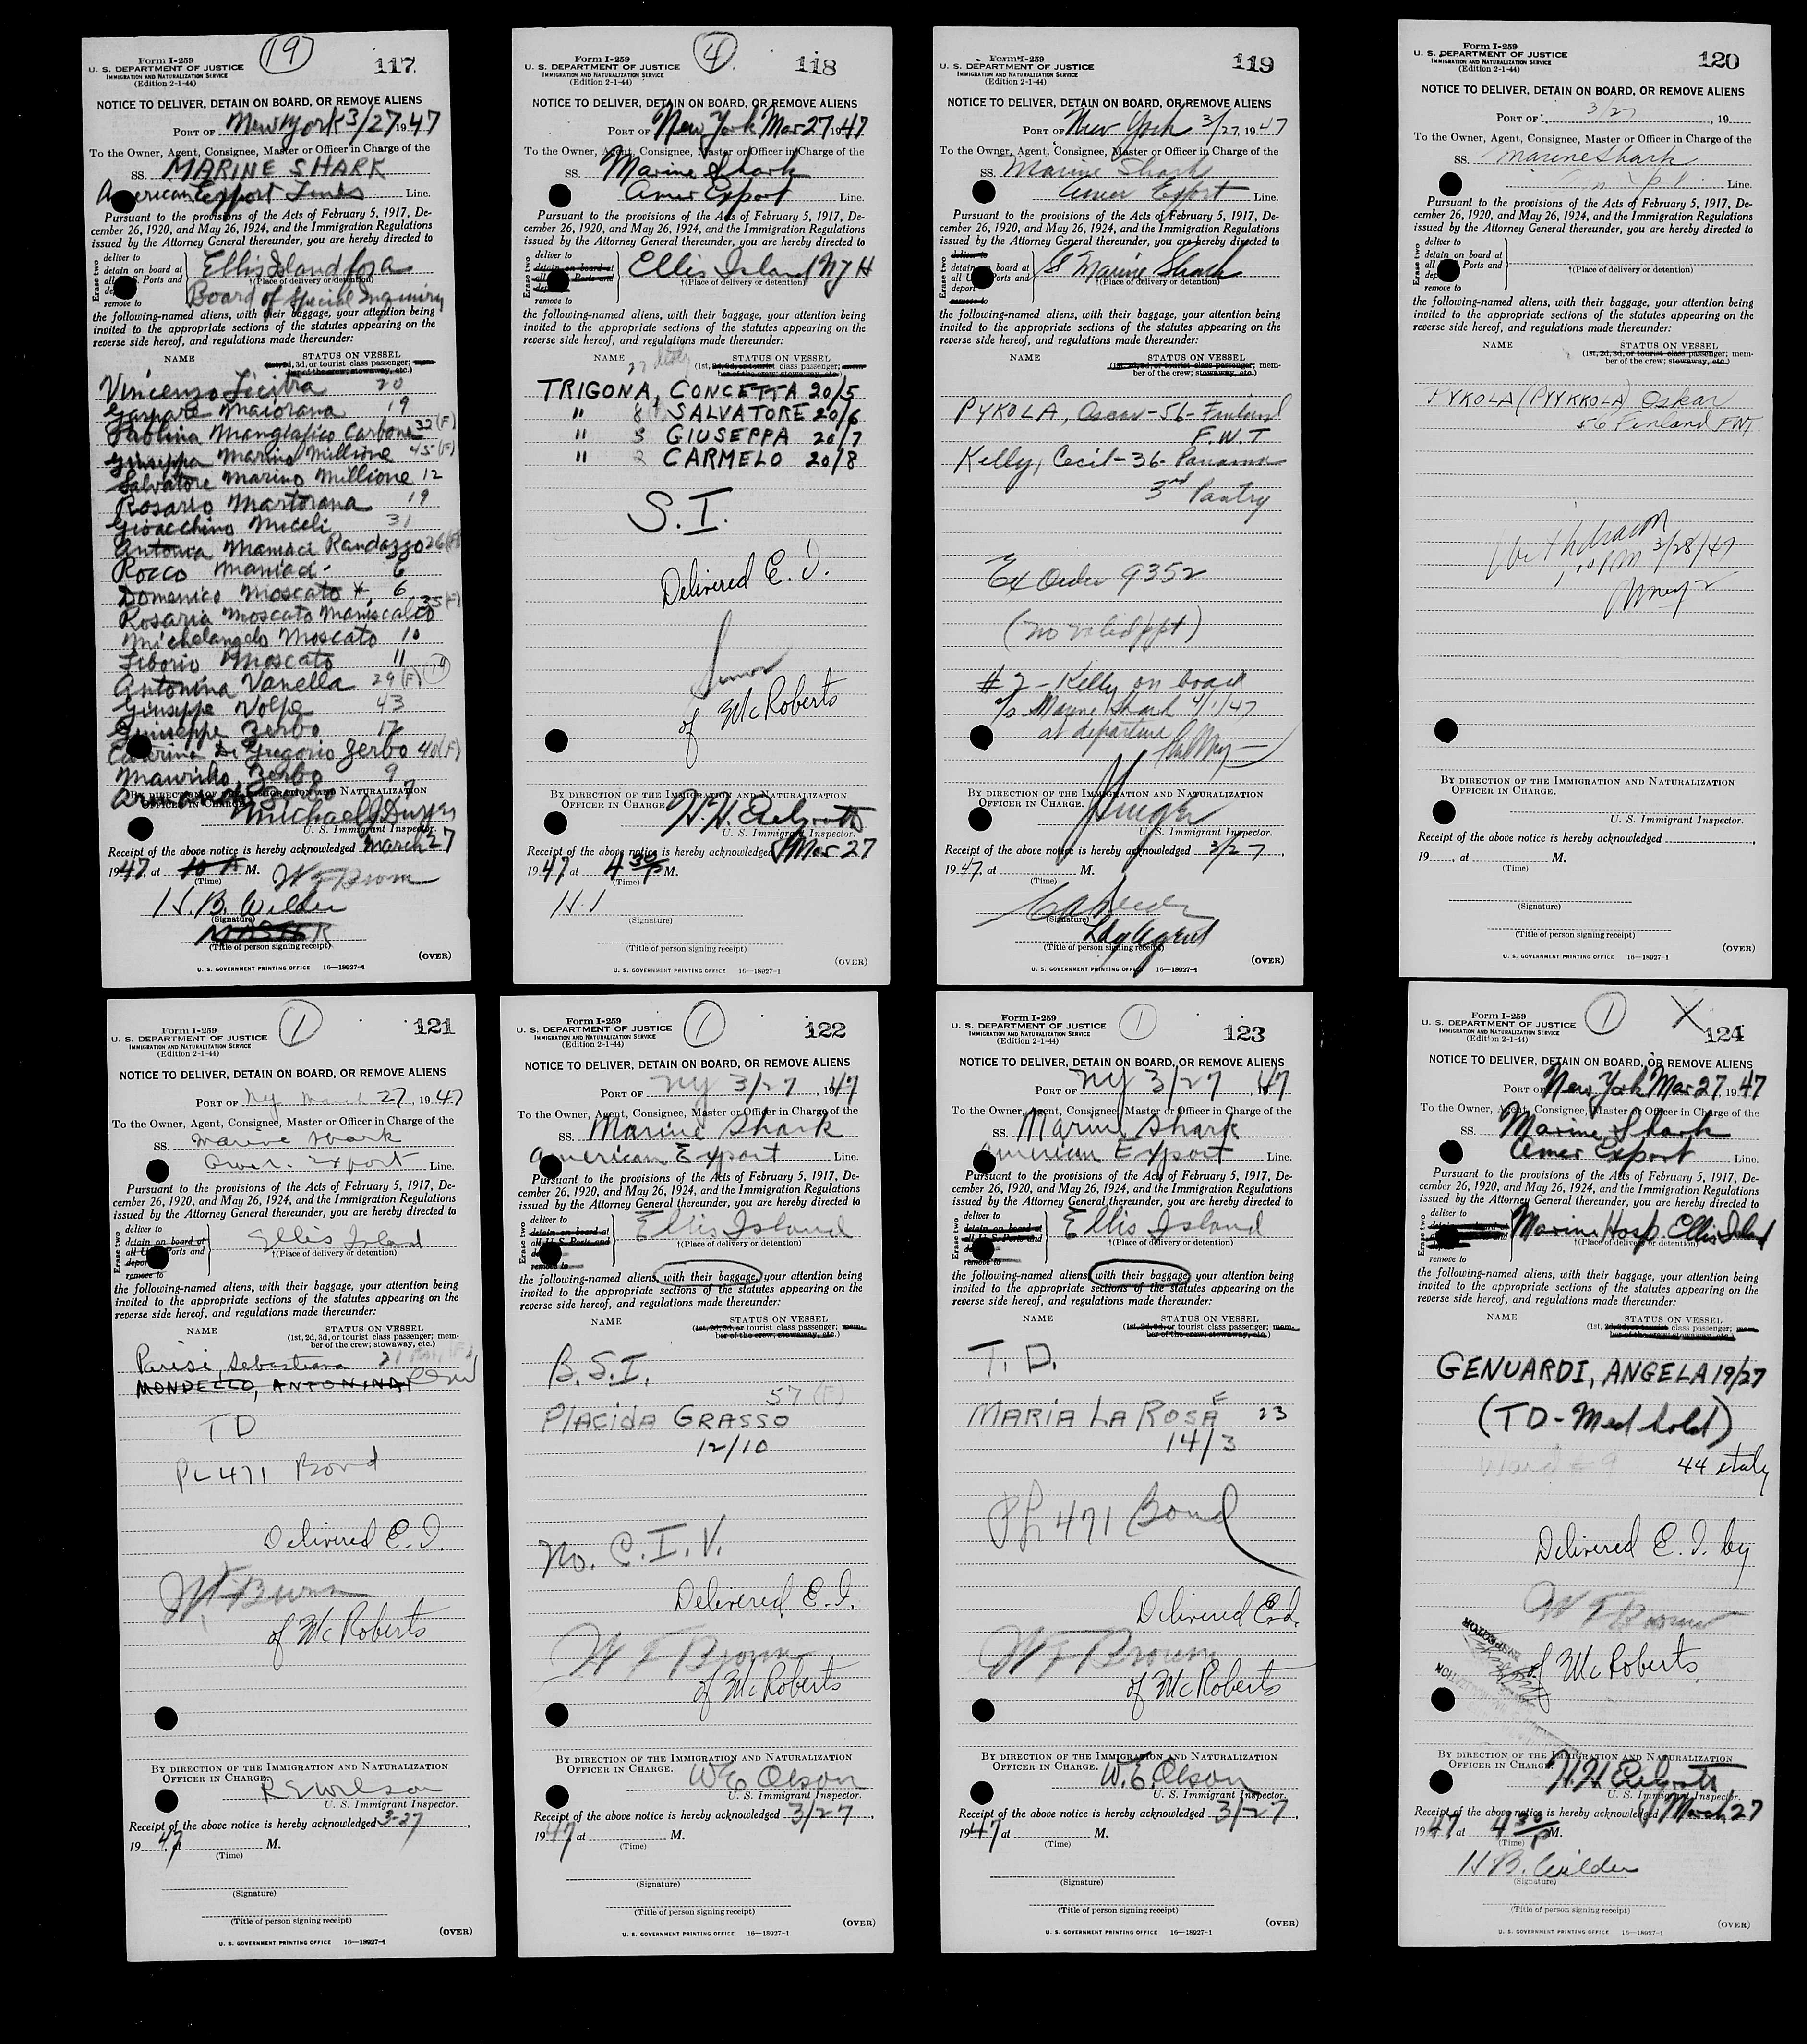 19
117
Form I-259
U. S. DEPARTMENT OF JUSTICE
IMMIGRATION AND NATURALIZATION SERVICE
(Edition 2-1-44)
NOTICE TO DELIVER, DETAIN ON BOARD, OR REMOVE ALIENS
PORT OF New York 3/27 1947
To the Owner, Agent, Consignee, Master or Officer in Charge of the
SS. MARINE SHARK
American Export Lines Line.
Pursuant to the provisions of the Acts of February 5, 1917, De-
cember 26, 1920, and May 26, 1924, and the Immigration Regulations
issued by the Attorney General thereunder, you are hereby directed to
Erase two
deliver to
detain on board at
all Ports and
remove to
Ellis Island for a
†(Place of delivery or detention)
Board of Special Inquiry
the following-named aliens, with their baggage, your attention being
invited to the appropriate sections of the statutes appearing on the
reverse side hereof, and regulations made thereunder:
NAME STATUS ON VESSEL
(1st, 2d, 3d, or tourist class passenger; mem-
ber of the crew; stowaway, etc.)
Vincenzo Licitra 20
Gaspare Maiorana 19
Paolina Mangiafico Carbone 32 (F)
Giuseppa Marino Millione 45 (F)
Salvatore Marino Millione 12
Rosario Martorana 19
Gioacchino Miceli 31
Antonia Maniaci Randazzo 26 (F)
Rocco Maniaci 6
Domenico Moscato * 6
Rosaria Moscato Maniscalco 35 (F)
Michelangelo Moscato 10
Liborio Moscato 11
Antonina Vanella 29 (F) 19
Giuseppe Volpe 43
Giuseppe Zerbo 17
Caterina Di Gregorio Zerbo 40 (F)
Maurizio Zerbo 9
Zerbo 7
BY DIRECTION OF THE IMMIGRATION AND NATURALIZATION
OFFICER IN CHARGE.
Michael J.
U. S. Immigrant Inspector.
Receipt of the above notice is hereby acknowledged March 27
1947 at 10 A M. W F Brown
(Time)
H. B. Wilder
(Signature)
MASTER
(Title of person signing receipt)
(OVER)
U. S. GOVERNMENT PRINTING OFFICE 16—18927-1
4
118
Form I-259
U. S. DEPARTMENT OF JUSTICE
IMMIGRATION AND NATURALIZATION SERVICE
(Edition 2-1-44)
NOTICE TO DELIVER, DETAIN ON BOARD, OR REMOVE ALIENS
PORT OF New York Mar 27 1947
To the Owner, Agent, Consignee, Master or Officer in Charge of the
SS. Marine Shark
Amer Export Line.
Pursuant to the provisions of the Acts of February 5, 1917, De-
cember 26, 1920, and May 26, 1924, and the Immigration Regulations
issued by the Attorney General thereunder, you are hereby directed to
Erase two
deliver to
detain on board at
all Ports and
remove to
Ellis Island NY H
†(Place of delivery or detention)
the following-named aliens, with their baggage, your attention being
invited to the appropriate sections of the statutes appearing on the
reverse side hereof, and regulations made thereunder:
NAME STATUS ON VESSEL
(1st, 2d, 3d, or tourist class passenger; mem-
ber of the crew; stowaway, etc.)
27 Italy
TRIGONA, CONCETTA 20/5
" 8 SALVATORE 20/6
" 5 GIUSEPPA 20/7
" 2 CARMELO 20/8
S. I.
Delivered E. I.
of McRoberts
BY DIRECTION OF THE IMMIGRATION AND NATURALIZATION
OFFICER IN CHARGE.
U. S. Immigrant Inspector.
Receipt of the above notice is hereby acknowledged Mar 27
1947 at 4 30 P M.
(Time)
(Signature)
(Title of person signing receipt)
(OVER)
U. S. GOVERNMENT PRINTING OFFICE 16—18927-1
119
Form I-259
U. S. DEPARTMENT OF JUSTICE
IMMIGRATION AND NATURALIZATION SERVICE
(Edition 2-1-44)
NOTICE TO DELIVER, DETAIN ON BOARD, OR REMOVE ALIENS
PORT OF New York 3/27, 1947
To the Owner, Agent, Consignee, Master or Officer in Charge of the
SS. Marine Shark
Amer Export Line.
Pursuant to the provisions of the Acts of February 5, 1917, De-
cember 26, 1920, and May 26, 1924, and the Immigration Regulations
issued by the Attorney General thereunder, you are hereby directed to
Erase two
deliver to
detain on board at
all U. Ports and
deport
remove to
SS Marine Shark
†(Place of delivery or detention)
the following-named aliens, with their baggage, your attention being
invited to the appropriate sections of the statutes appearing on the
reverse side hereof, and regulations made thereunder:
NAME STATUS ON VESSEL
(1st, 2d, 3d, or tourist class passenger; mem-
ber of the crew; stowaway, etc.)
PYKOLA, Oscar - 56 - Finland
F.W.T
Kelly, Cecil - 36 - Panama
3rd Pantry
Ex Order 9352
(no valid ppt)
# 2 - Kelly on board
s/s Marine Shark 4/1/47
at departure
BY DIRECTION OF THE IMMIGRATION AND NATURALIZATION
OFFICER IN CHARGE.
U. S. Immigrant Inspector.
Receipt of the above notice is hereby acknowledged 3/27,
1947, at M.
(Time)
(Signature)
(Title of person signing receipt)
(OVER)
U. S. GOVERNMENT PRINTING OFFICE 16—18927-1
120
Form I-259
U. S. DEPARTMENT OF JUSTICE
IMMIGRATION AND NATURALIZATION SERVICE
(Edition 2-1-44)
NOTICE TO DELIVER, DETAIN ON BOARD, OR REMOVE ALIENS
PORT OF 3/27, 19
To the Owner, Agent, Consignee, Master or Officer in Charge of the
SS. Marine Shark
Line.
Pursuant to the provisions of the Acts of February 5, 1917, De-
cember 26, 1920, and May 26, 1924, and the Immigration Regulations
issued by the Attorney General thereunder, you are hereby directed to
Erase two
deliver to
detain on board at
all Ports and
remove to
†(Place of delivery or detention)
the following-named aliens, with their baggage, your attention being
invited to the appropriate sections of the statutes appearing on the
reverse side hereof, and regulations made thereunder:
NAME STATUS ON VESSEL
(1st, 2d, 3d, or tourist class passenger; mem-
ber of the crew; stowaway, etc.)
PYKOLA (PYYKKOLA) Oskar
56 Finland FWT
Withdrawn
3/28/47
BY DIRECTION OF THE IMMIGRATION AND NATURALIZATION
OFFICER IN CHARGE.
U. S. Immigrant Inspector.
Receipt of the above notice is hereby acknowledged
19, at M.
(Time)
(Signature)
(Title of person signing receipt)
(OVER)
U. S. GOVERNMENT PRINTING OFFICE 16—18927-1
1
121
Form I-259
U. S. DEPARTMENT OF JUSTICE
IMMIGRATION AND NATURALIZATION SERVICE
(Edition 2-1-44)
NOTICE TO DELIVER, DETAIN ON BOARD, OR REMOVE ALIENS
PORT OF Ny March 27, 1947
To the Owner, Agent, Consignee, Master or Officer in Charge of the
SS. Marine Shark
Amer. Export Line.
Pursuant to the provisions of the Acts of February 5, 1917, De-
cember 26, 1920, and May 26, 1924, and the Immigration Regulations
issued by the Attorney General thereunder, you are hereby directed to
Erase two
deliver to
detain on board at
all U Ports and
deport
remove to
Ellis Island
†(Place of delivery or detention)
the following-named aliens, with their baggage, your attention being
invited to the appropriate sections of the statutes appearing on the
reverse side hereof, and regulations made thereunder:
NAME STATUS ON VESSEL
(1st, 2d, 3d, or tourist class passenger; mem-
ber of the crew; stowaway, etc.)
Parisi, Sebastiana 21
MONDELLO, ANTONINA
TD
PL 471 Bond
Delivered E. I.
W F Brown
of McRoberts
BY DIRECTION OF THE IMMIGRATION AND NATURALIZATION
OFFICER IN CHARGE.
R E Wilson
U. S. Immigrant Inspector.
Receipt of the above notice is hereby acknowledged 3-27,
1947, at M.
(Time)
(Signature)
(Title of person signing receipt)
(OVER)
U. S. GOVERNMENT PRINTING OFFICE 16—18927-1
1
122
Form I-259
U. S. DEPARTMENT OF JUSTICE
IMMIGRATION AND NATURALIZATION SERVICE
(Edition 2-1-44)
NOTICE TO DELIVER, DETAIN ON BOARD, OR REMOVE ALIENS
PORT OF NY 3/27, 1947
To the Owner, Agent, Consignee, Master or Officer in Charge of the
SS. Marine Shark
American Export Line.
Pursuant to the provisions of the Acts of February 5, 1917, De-
cember 26, 1920, and May 26, 1924, and the Immigration Regulations
issued by the Attorney General thereunder, you are hereby directed to
Erase two
deliver to
detain on board at
all U. S. Ports and
remove to
Ellis Island
†(Place of delivery or detention)
the following-named aliens, with their baggage, your attention being
invited to the appropriate sections of the statutes appearing on the
reverse side hereof, and regulations made thereunder:
NAME STATUS ON VESSEL
(1st, 2d, 3d, or tourist class passenger; mem-
ber of the crew; stowaway, etc.)
B.S.I.
57 (F)
PLACIDA GRASSO
12/10
No. C.I.V.
Delivered E. I.
W F Brown
of McRoberts
BY DIRECTION OF THE IMMIGRATION AND NATURALIZATION
OFFICER IN CHARGE.
W E Olson
U. S. Immigrant Inspector.
Receipt of the above notice is hereby acknowledged 3/27,
1947 at M.
(Time)
(Signature)
(Title of person signing receipt)
(OVER)
U. S. GOVERNMENT PRINTING OFFICE 16—18927-1
1
123
Form I-259
U. S. DEPARTMENT OF JUSTICE
IMMIGRATION AND NATURALIZATION SERVICE
(Edition 2-1-44)
NOTICE TO DELIVER, DETAIN ON BOARD, OR REMOVE ALIENS
PORT OF NY 3/27, 1947
To the Owner, Agent, Consignee, Master or Officer in Charge of the
SS. Marine Shark
American Export Line.
Pursuant to the provisions of the Acts of February 5, 1917, De-
cember 26, 1920, and May 26, 1924, and the Immigration Regulations
issued by the Attorney General thereunder, you are hereby directed to
Erase two
deliver to
detain on board at
all U. S. Ports and
remove to
Ellis Island
†(Place of delivery or detention)
the following-named aliens, with their baggage, your attention being
invited to the appropriate sections of the statutes appearing on the
reverse side hereof, and regulations made thereunder:
NAME STATUS ON VESSEL
(1st, 2d, 3d, or tourist class passenger; mem-
ber of the crew; stowaway, etc.)
T. D.
MARIA LA ROSA F 23
14/3
PL 471 Bond
Delivered E.I.
W F Brown
of McRoberts
BY DIRECTION OF THE IMMIGRATION AND NATURALIZATION
OFFICER IN CHARGE.
W. E. Olson
U. S. Immigrant Inspector.
Receipt of the above notice is hereby acknowledged 3/27,
1947 at M.
(Time)
(Signature)
(Title of person signing receipt)
(OVER)
U. S. GOVERNMENT PRINTING OFFICE 16—18927-1
1
X
124
Form I-259
U. S. DEPARTMENT OF JUSTICE
IMMIGRATION AND NATURALIZATION SERVICE
(Edition 2-1-44)
NOTICE TO DELIVER, DETAIN ON BOARD, OR REMOVE ALIENS
PORT OF New York Mar 27, 1947
To the Owner, Agent, Consignee, Master or Officer in Charge of the
SS. Marine Shark
Amer Export Line.
Pursuant to the provisions of the Acts of February 5, 1917, De-
cember 26, 1920, and May 26, 1924, and the Immigration Regulations
issued by the Attorney General thereunder, you are hereby directed to
Erase two
deliver to
Marine Hosp. Ellis Island
†(Place of delivery or detention)
the following-named aliens, with their baggage, your attention being
invited to the appropriate sections of the statutes appearing on the
reverse side hereof, and regulations made thereunder:
NAME STATUS ON VESSEL
(1st, 2d, 3d, or tourist class passenger; mem-
ber of the crew; stowaway, etc.)
GENUARDI, ANGELA 19/27
(TD - Med hold)
Ward # 9 44 Italy
Delivered E. I. by
W F Brown
of McRoberts
INSPECTOR
BY DIRECTION OF THE IMMIGRATION AND NATURALIZATION
OFFICER IN CHARGE.
U. S. Immigrant Inspector.
Receipt of the above notice is hereby acknowledged March 27
1947 at 4 30 P M.
(Time)
H. B. Wilder
(Signature)
(Title of person signing receipt)
(OVER)
U. S. GOVERNMENT PRINTING OFFICE 16—18927-1